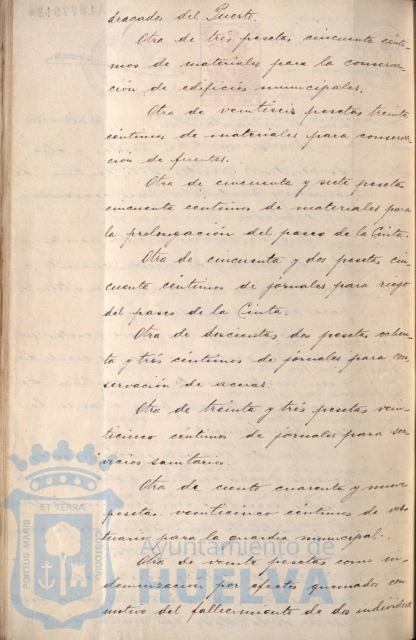 dragados del Puerto.
Otra de tres pesetas cincuenta cénti-
mos de materiales para la conserva-
ción de edificios municipales.
Otra de veintiseis pesetas treinta
céntimos de materiales para conserva-
ción de fuentes.
Otra de cincuenta y siete pesetas
cincuenta céntimos de materiales para
la prolongación del paseo de la Cinta.
Otra de cincuenta y dos pesetas cin-
cuenta céntimos de jornales para riego
del paseo de la Cinta.
Otra de doscientas dos pesetas ochen-
ta y tres céntimos de jornales para con-
servación de aceras.
Otra de treinta y tres pesetas vein-
ticinco céntimos de jornales para ser-
vicios sanitarios.
Otra de ciento cuarenta y nueve
pesetas veinticinco céntimos de ves-
tuario para la guardia municipal.
Otra de veinte pesetas como in-
demnización por efectos quemados con
motivo del fallecimiento de dos individuos
PORTUS MARIS
ET TERRÆ
CUSTODIA
Ayuntamiento de
HUELVA